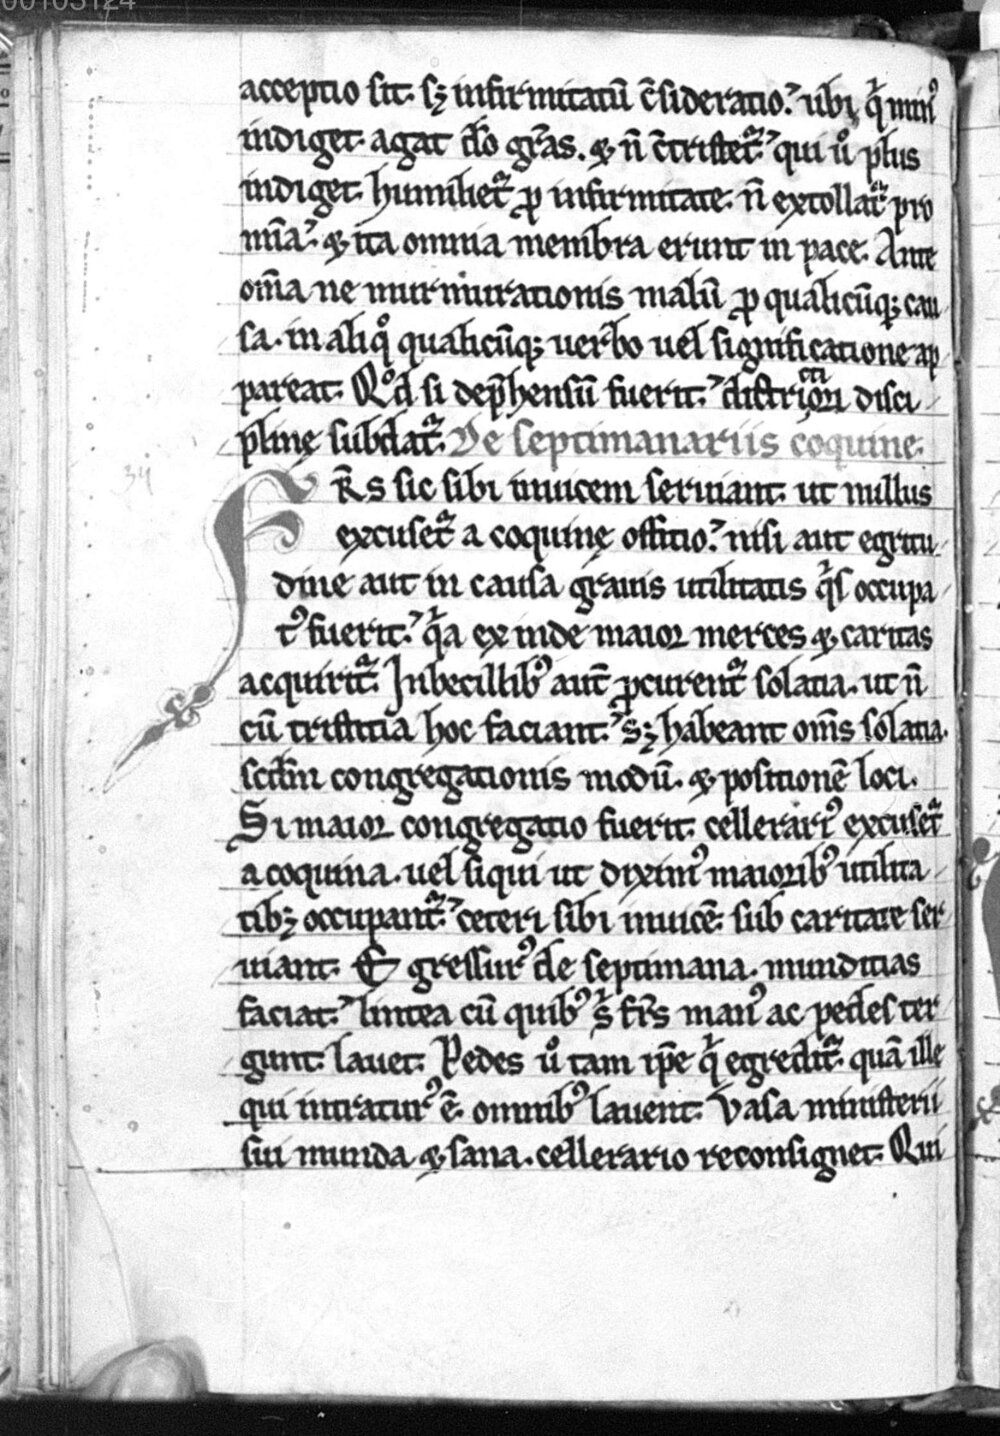 00103124
acceptio sit. sꝫ infirmitatū c̄sideratio. ubi qͥ minꝰ
indiget. agat dō gr̄as. ⁊ n̄ c̄tristetᷣ. qui ů plus
indiget. humilietᷣ ꝓ infirmitate. n̄ extollatᷣ pro
mīa. ⁊ ita omnia membra erunt in pace. Ante
om̄a ne murmurationis malū ꝓ qualicūqꝫ cau
sa. in aliqͦ qualicūqꝫ uerbo uel significatione ap
pareat. Qͦd si dep̄hensū fuerit. districtiori disci
plinę subdatᷣ. De septimanariis coquine.
34
FR̄S sic sibi inuicem seruiant. ut nullus
excusetᷣ a coquinę offitio. nisi aut egritu
dine aut in causa grauis utilitatis qͥs occupa
tꝰ fuerit. qͥa exinde maior merces ⁊ caritas
acquiritᷣ. Inbecillibꝰ aut̄ ꝓcurentᷣ solatia. ut n̄
cū tristitia hoc faciant. sꝫ habeant om̄s solatia.
scd̄m congregationis modū. ⁊ positionē loci.
Si maior congregatio fuerit. cellerariꝰ excusetᷣ
a coquina. uel siqui ut diximꝰ maioribꝰ utilita
tibꝫ occupantᷣ. ceteri sibi inuicē sub caritate ser
uiant. Egressurꝰ de septimana. munditias
faciat. lintea cū quibꝰ s̄ fr̄s manꝰ ac pedes ter
gunt. lauet. Pedes ů tam ip̄e qͥ egreditᷣ. quā ille
qui intraturꝰ ē. omnibꝰ lauent. Vasa ministerii
sui munda ⁊ sana. cellerario reconsignet. Qui